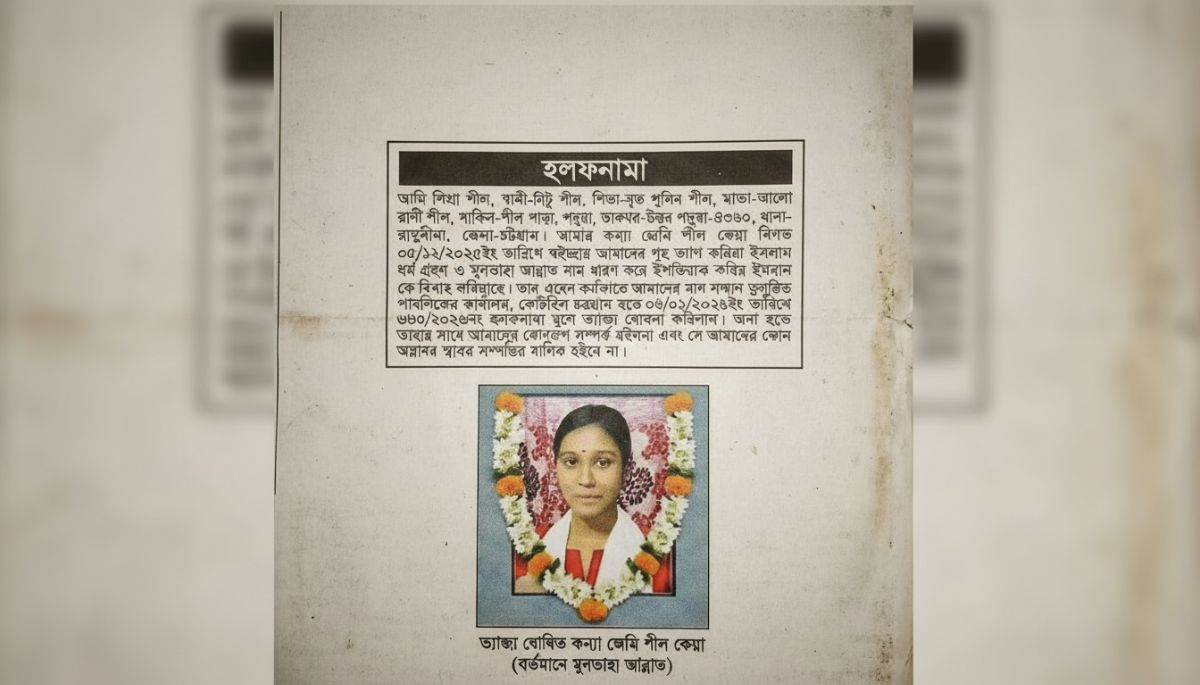 হলফনামা
আমি শিখা শীল, স্বামী-নিটু শীল, পিতা-মৃত পুলিন শীল, মাতা-আলো
রানী শীল, সাকিন-শীল পাড়া, পদুয়া, ডাকঘর-উত্তর পদুয়া-৪৩৬০, থানা-
রাঙ্গুনীয়া, জেলা-চট্টগ্রাম। আমার কন্যা জেমি শীল কেয়া বিগত
০৫/১২/২০২৫ইং তারিখে স্বইচ্ছায় আমাদের গৃহ ত্যাগ করিয়া ইসলাম
ধর্ম গ্রহণ ও মুনতাহা জান্নাত নাম ধারণ করে ইশতিয়াক কবির ইমরান
কে বিবাহ করিয়াছে। তার এহেন কার্যকাণ্ডে আমাদের মান সম্মান
পাবলিকের কার্যালয়, কোর্টহিল চট্টগ্রাম হতে ০৬/০১/২০২৬ইং তারিখে
২০২৬নং হলফনামা মূলে ত্যাজ্য ঘোষনা করিলাম। অদ্য হতে
তাহার সাথে আমাদের কোনরূপ সম্পর্ক রইলনা এবং সে আমাদের কোন
স্থাবর সম্পত্তির মালিক হইবে না।
ত্যাজ্য ঘোষিত কন্যা জেমি শীল কেয়া
(বর্তমানে মুনতাহা জান্নাত)